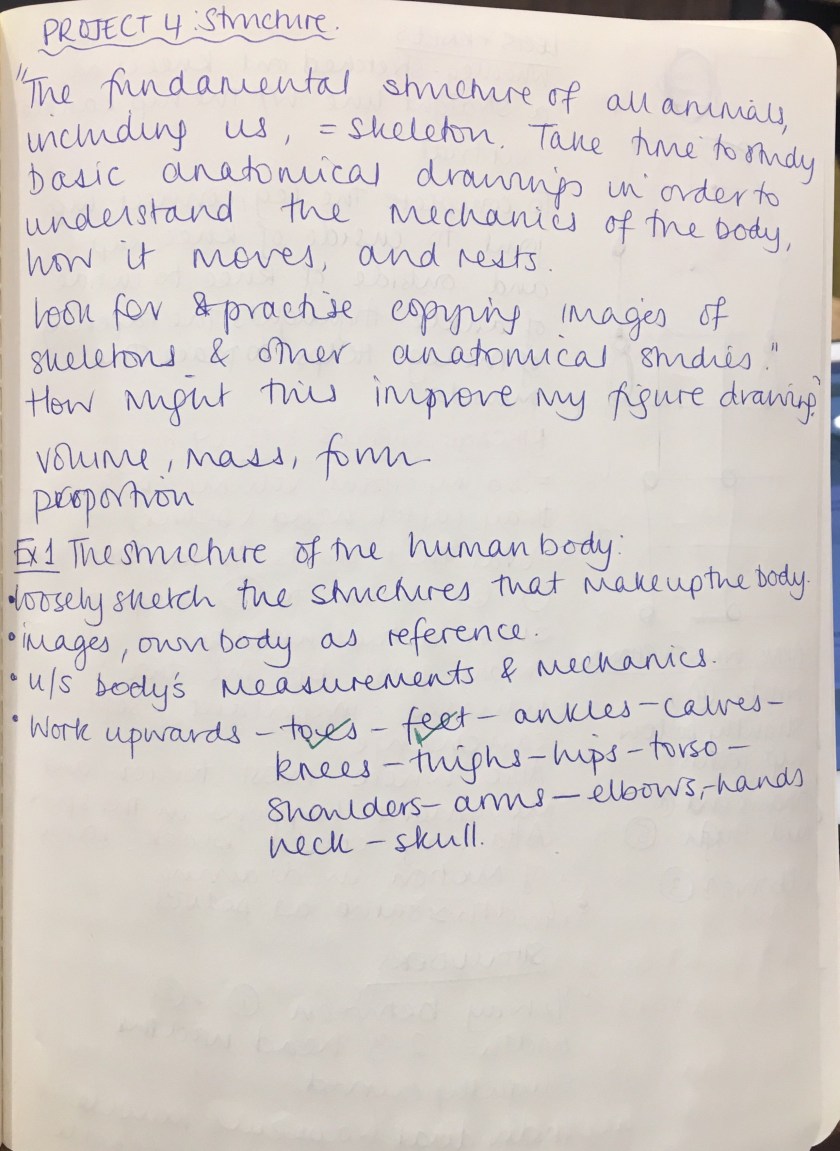 PROJECT 4: Structure.
"The fundamental structure of all animals,
including us, = skeleton. Take time to study
basic anatomical drawings in order to
understand the mechanics of the body,
how it moves, and rests.
Look for & practise copying images of
skeletons & other anatomical studies."
How might this improve my figure drawing?
volume, mass, form
proportion
Ex 1 The structure of the human body:
• loosely sketch the structures that make up the body.
• images, own body as reference.
• U/S body's measurements & mechanics.
• Work upwards - toes - feet - ankles - calves -
knees - thighs - hips - torso -
shoulders - arms - elbows, - hands
neck - skull.